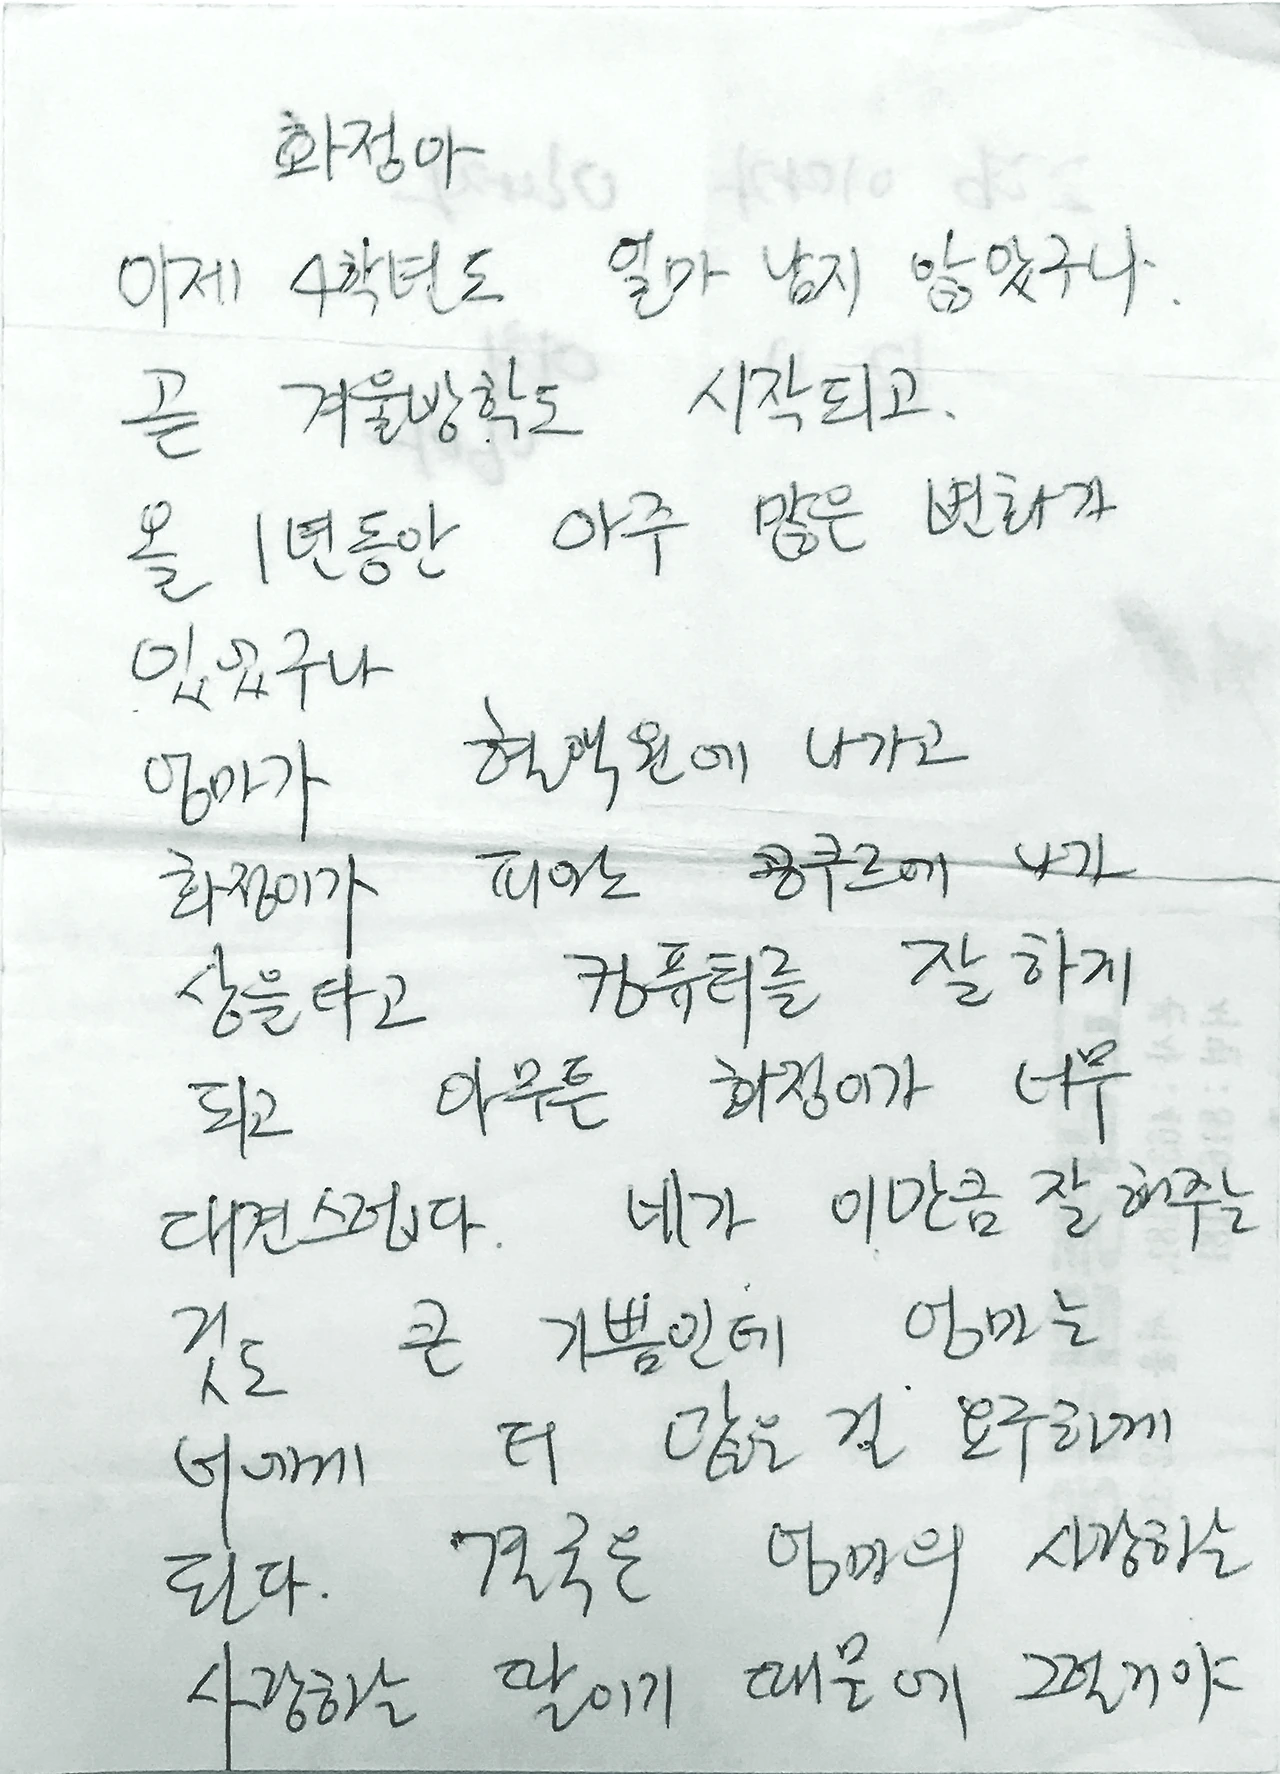 화정아
이제 4학년도 얼마 남지 않았구나.
곧 겨울방학도 시작되고.
올 1년동안 아주 많은 변화가
있었구나
엄마가 혈액원에 나가고
화정이가 피아노 콩쿠르에 나가
상을타고 컴퓨터를 잘하게
되고 아무튼 화정이가 너무
대견스럽다. 네가 이만큼 잘해주는
것도 큰 기쁨인데 엄마는
너에게 더 많은 걸 요구하게
된다. 결국은 엄마의 사랑하는
사랑하는 딸이기 때문에 그럴거야